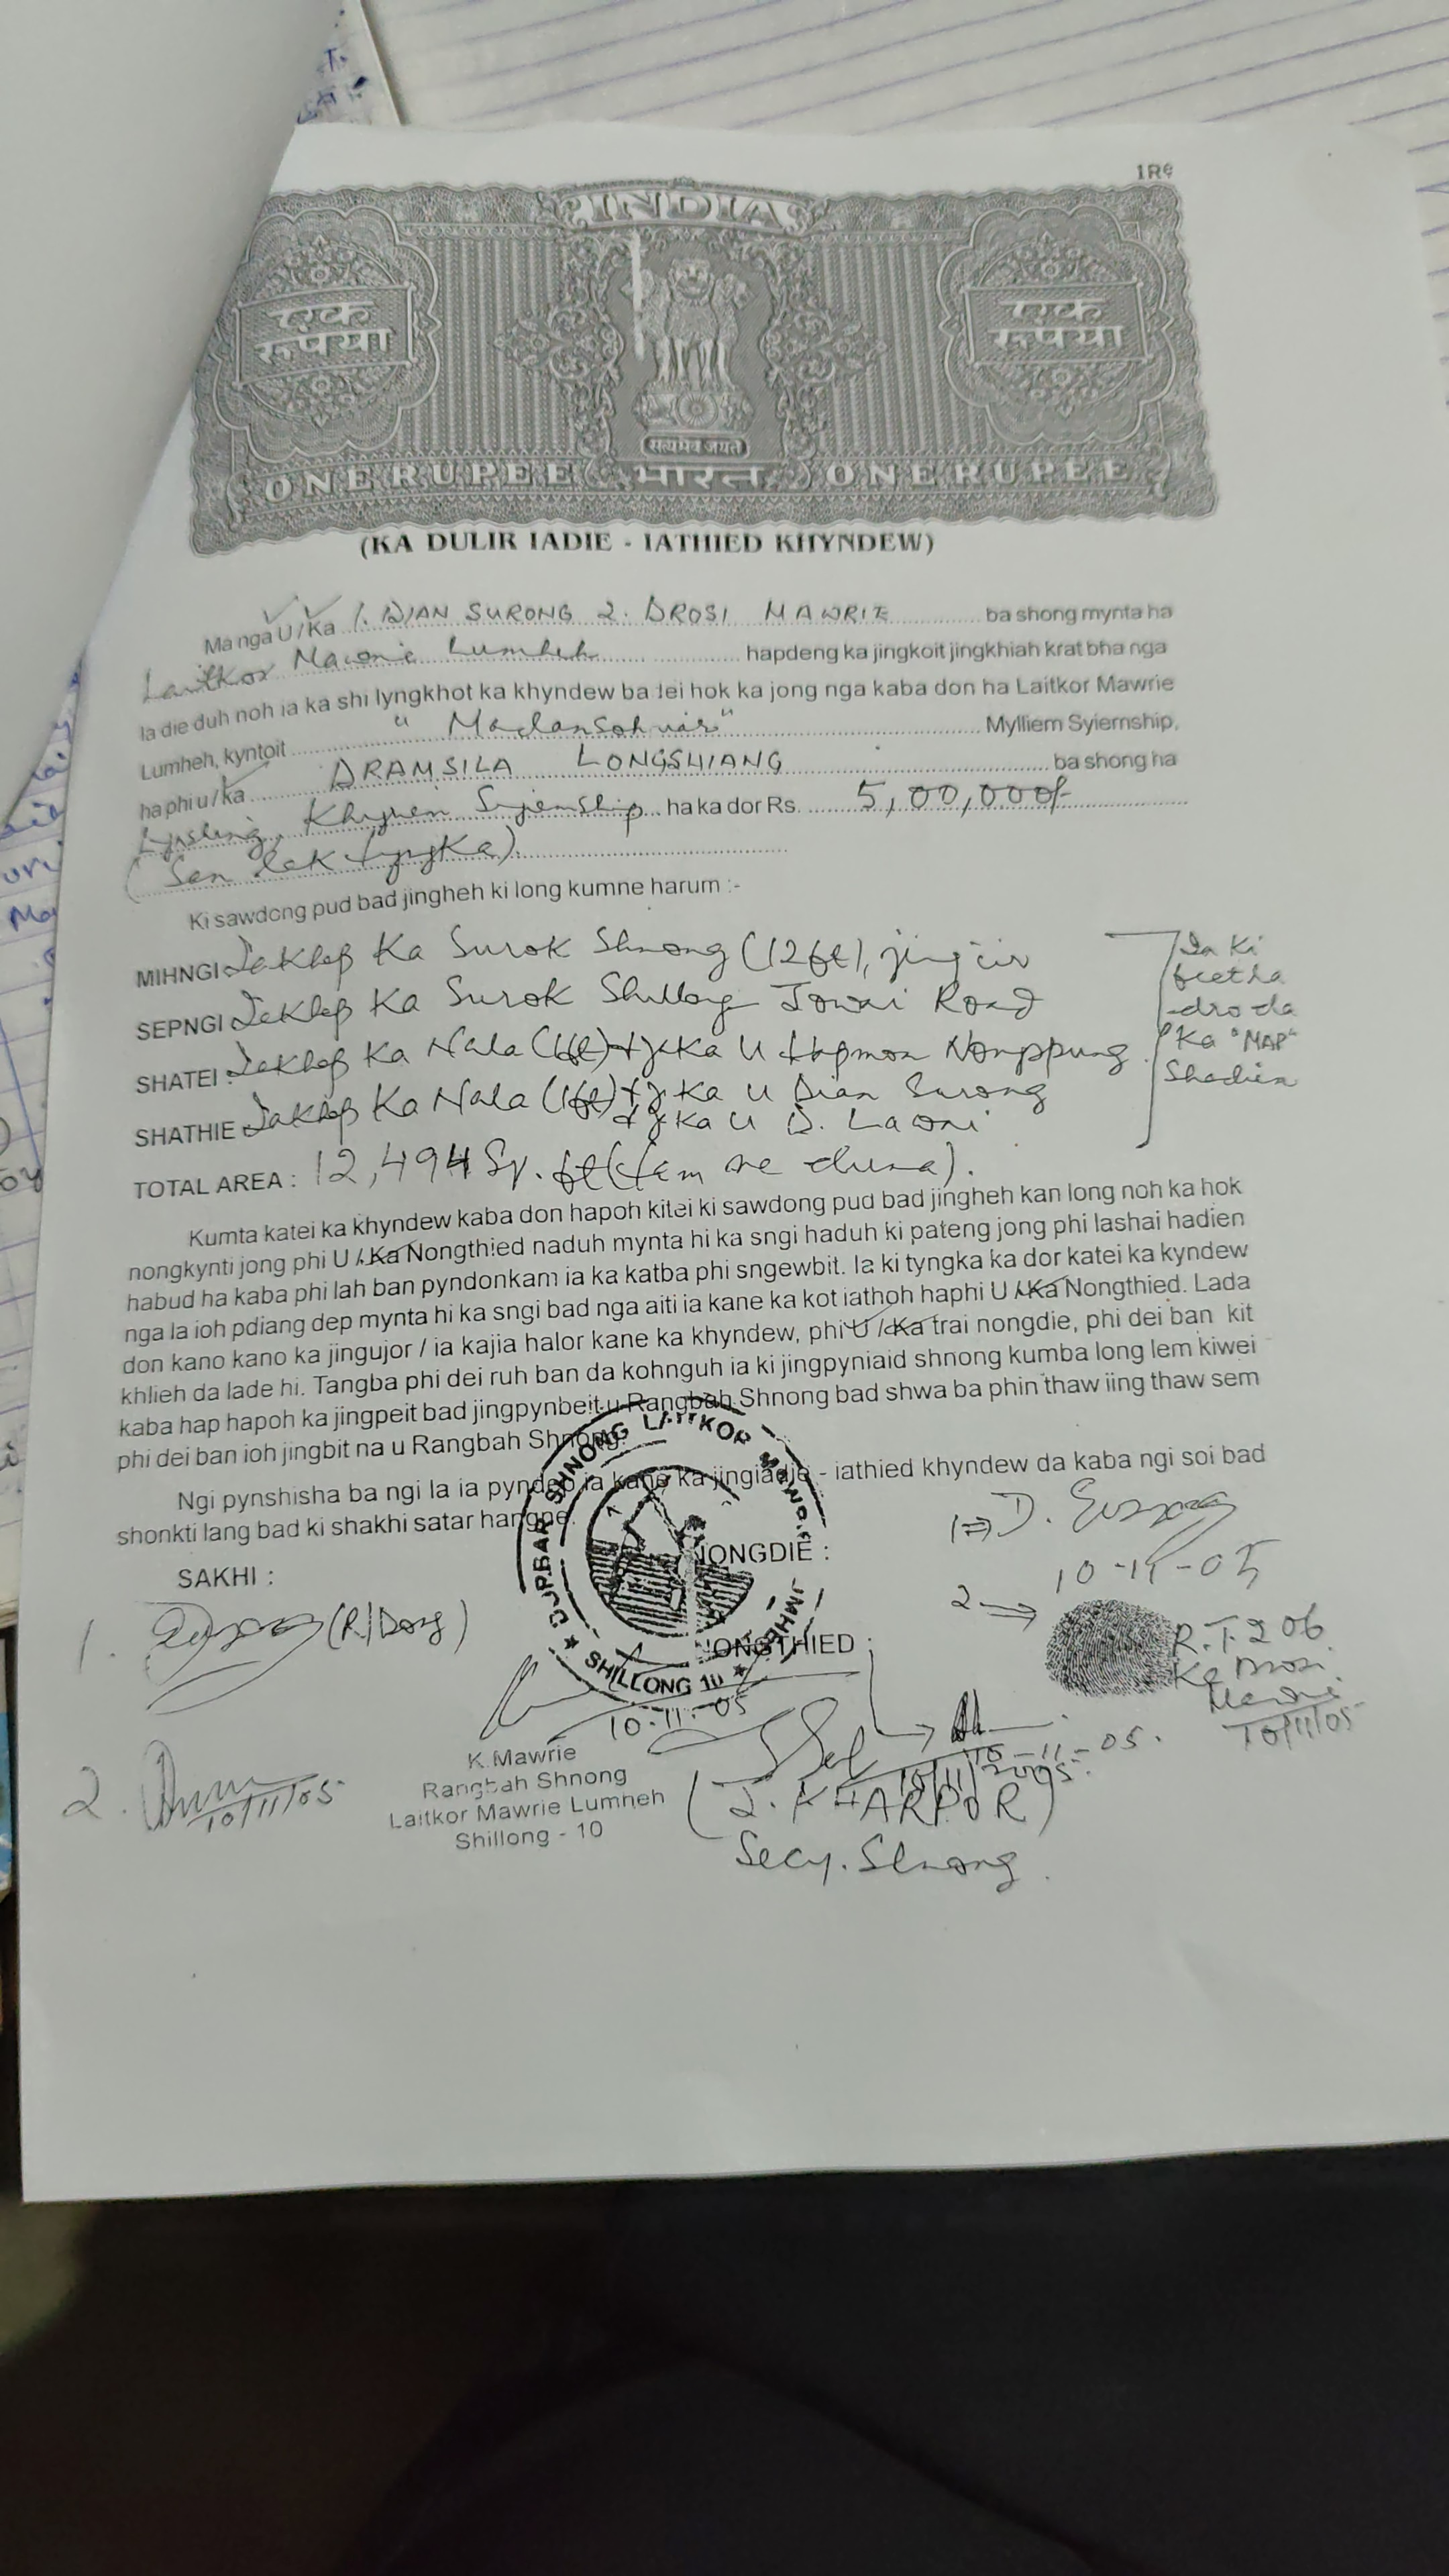 1RS
INDIA
एक रूपया
एक रूपया
सत्यमेव जयते
ONE RUPEE भारत ONE RUPEE
(KA DULIR IADIE - IATHIED KHYNDEW)
Ma nga U/Ka 1. DIAN SURONG 2. DROSI MAWRIE ba shong mynta ha
Laitkor Mawrie Lumheh hapdeng ka jingkoit jingkhiah krat bha nga
la die duh noh ia ka shi lyngkhot ka khyndew ba dei hok ka jong nga kaba don ha Laitkor Mawrie
Lumheh, kyntoit "Madansohriar" Mylliem Syiemship,
ha phi u/ka DRAMSILA LONGSHIANG ba shong ha
Khyrem Syiemship ha ka dor Rs. 5,00,000/-
(San lak tyngka).
Ki sawdong pud bad jingheh ki long kumne harum :-
MIHNGI Ka Surok Shnong (12ft),
SEPNGI Ka Surok Shillong Jowai Road
SHATEI : Ka Nala (1ft) + Ka U
SHATHIE Ka Nala (1ft) + Ka U Dian Surong
Ka U D.
Ia Ki
dro da
Ka "MAP"
Shadien
TOTAL AREA : 12,494 Sq. ft (tam ne duna).
Kumta katei ka khyndew kaba don hapoh kitei ki sawdong pud bad jingheh kan long noh ka hok
nongkynti jong phi U / Ka Nongthied naduh mynta hi ka sngi haduh ki pateng jong phi lashai hadien
habud ha kaba phi lah ban pyndonkam ia ka katba phi sngewbit. Ia ki tyngka ka dor katei ka kyndew
nga la ioh pdiang dep mynta hi ka sngi bad nga aiti ia kane ka kot iathoh haphi U / Ka Nongthied. Lada
don kano kano ka jingujor / ia kajia halor kane ka khyndew, phi U / Ka trai nongdie, phi dei ban kit
khlieh da lade hi. Tangba phi dei ruh ban da kohnguh ia ki jingpyniaid shnong kumba long lem kiwei
kaba hap hapoh ka jingpeit bad jingpynbeit u Rangbah Shnong bad shwa ba phin thaw iing thaw sem
phi dei ban ioh jingbit na u Rangbah Shnong.
Ngi pynshisha ba ngi la ia pyndep ia kane ka jingiadie - iathied khyndew da kaba ngi soi bad
shonkti lang bad ki shakhi satar hangne.
DURBAR SHNONG LAITKOR MAWRIE LUMHEH
★ SHILLONG 10 ★
10-11-05
SAKHI :
NONGDIE :
1 ⇒ D. Surong
10-11-05
1. (R/Dong)
2 ⇒
R.T.I of
Ka Drosi
Mawrie
10/11/05
NONGTHIED :
10-11-05.
10/11/2005
2. 10/11/05
K Mawrie
Rangbah Shnong
Laitkor Mawrie Lumheh
Shillong - 10
(J. KHARPOR)
Secy. Shnong.